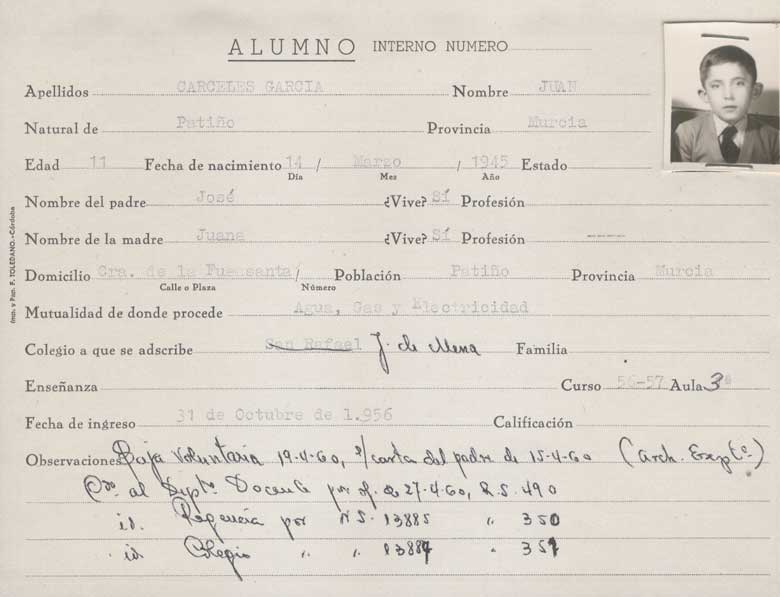 ALUMNO INTERNO NUMERO
Apellidos CARCELES GARCIA Nombre JUAN
Natural de Patiño Provincia Murcia
Edad 11 Fecha de nacimiento 14 / Marzo / 1945 Estado
Día Mez Año
Nombre del padre José ¿Vive? Sí Profesión
Nombre de la madre Juana ¿Vive? Sí Profesión ----
Domicilio Cra. de la Fuensanta / Población Patiño Provincia Murcia
Calle o Plaza Número
Mutualidad de donde procede Agua, Gas y Electricidad
Colegio a que se adscribe San Rafael J. de Mena Familia
Enseñanza Curso 56-57 Aula 3ª
Fecha de ingreso 31 de Octubre de 1.956 Calificación
Observaciones Baja Voluntaria 19-4-60, s/ carta del padre de 15-4-60 (Arch. Expte.)
al Dpto. Docente por of. de 27-4-60, R.S. 490
id. Regencia por N.S. 13885 " 350
id. Colegio " " 13884 " 351
Imp. y Pap. F. TOLEDANO.-Córdoba